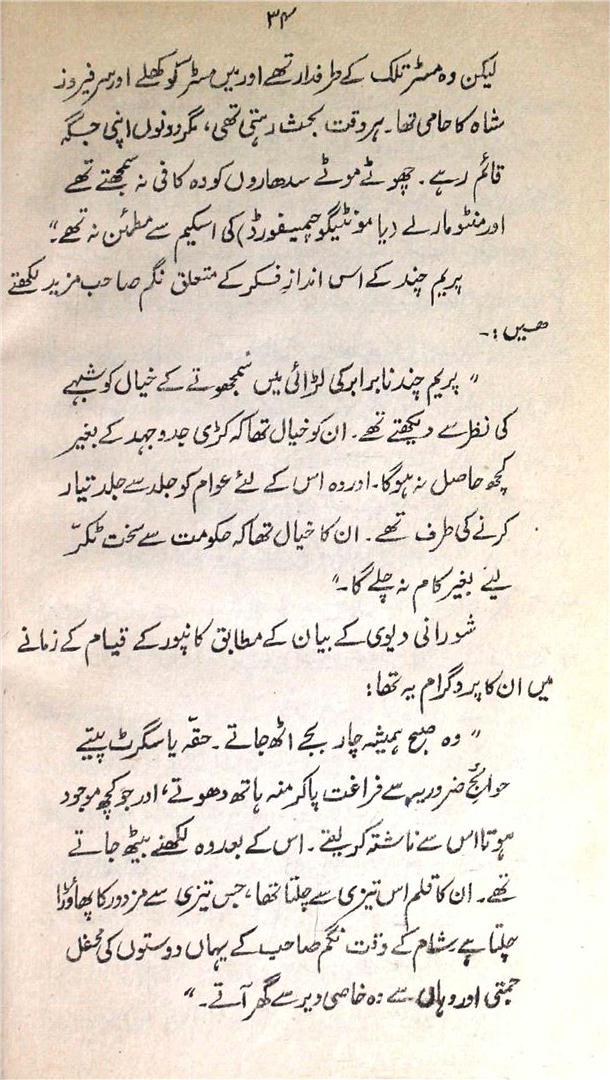 ۳۴
لیکن وہ مسٹر تلک کے طرفدار تھے اور میں مسٹر گوکھلے اور سر فیروز
شاہ کا حامی تھا۔ ہر وقت بحث رہتی تھی، مگر دونوں اپنی جگہ
قائم رہے۔ چھوٹے موٹے سدھاروں کو وہ کافی نہ سمجھتے تھے
اور منٹو مارلے (یا مونٹیگو چیمسفورڈ) کی اسکیم سے مطمئن نہ تھے۔"
پریم چند کے اس اندازِ فکر کے متعلق نگم صاحب مزید لکھتے
ھیں :۔
" پریم چند نابرابر کی لڑائی میں سمجھوتے کے خیال کو شبہے
کی نظر سے دیکھتے تھے۔ ان کو خیال تھا کہ کڑی جدوجہد کے بغیر
کچھ حاصل نہ ہوگا۔ اور وہ اس کے لئے عوام کو جلد سے جلد تیار
کرنے کی طرف تھے۔ ان کا خیال تھا کہ حکومت سے سخت ٹکّر
لیے بغیر کام نہ چلے گا۔"
شورانی دیوی کے بیان کے مطابق کانپور کے قیام کے زمانے
میں ان کا پروگرام یہ تھا:
" وہ صبح ہمیشہ چار بجے اٹھ جاتے۔ حقّہ یا سگرٹ پیتے
حوائج ضروریہ سے فراغت پاکر منہ ہاتھ دھوتے، اور جو کچھ موجود
ہوتا اس سے ناشتہ کر لیتے۔ اس کے بعد وہ لکھنے بیٹھ جاتے
تھے۔ ان کا قلم اس تیزی سے چلتا تھا، جس تیزی سے مزدور کا پھاوڑا
چلتا ہے۔ شام کے وقت نگم صاحب کے یہاں دوستوں کی محفل
جمتی اور وہاں سے وہ خاصی دیر سے گھر آتے۔"